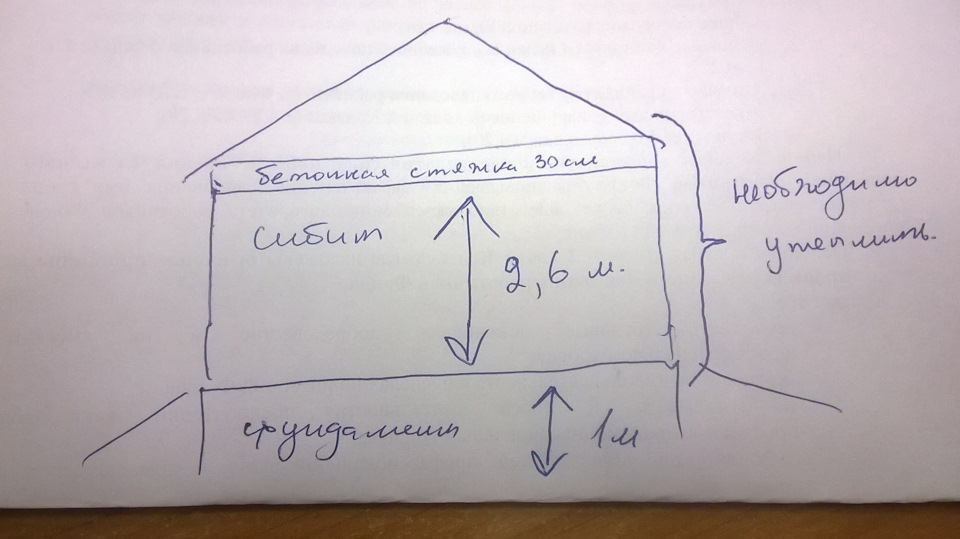 бетонная стяжка 30см
сибит
2,6 м.
необходимо
утеплить.
фундамент
1м